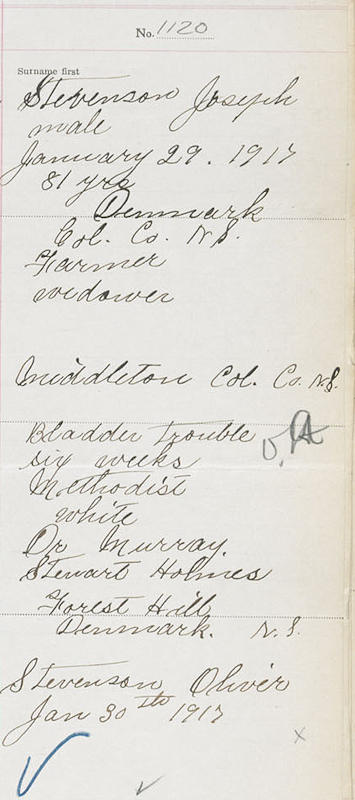 No. 1120
Surname first
Stevenson Joseph
male
January 29. 1917
81 yrs
Denmark
Col. Co. N.S.
Farmer
widower
Middleton Col. Co. N.S.
Bladder trouble
six weeks
Methodist
white
Dr Murray.
Stewart Holmes
Forest Hill
Denmark. N.S.
Stevenson Oliver
Jan 30th 1917